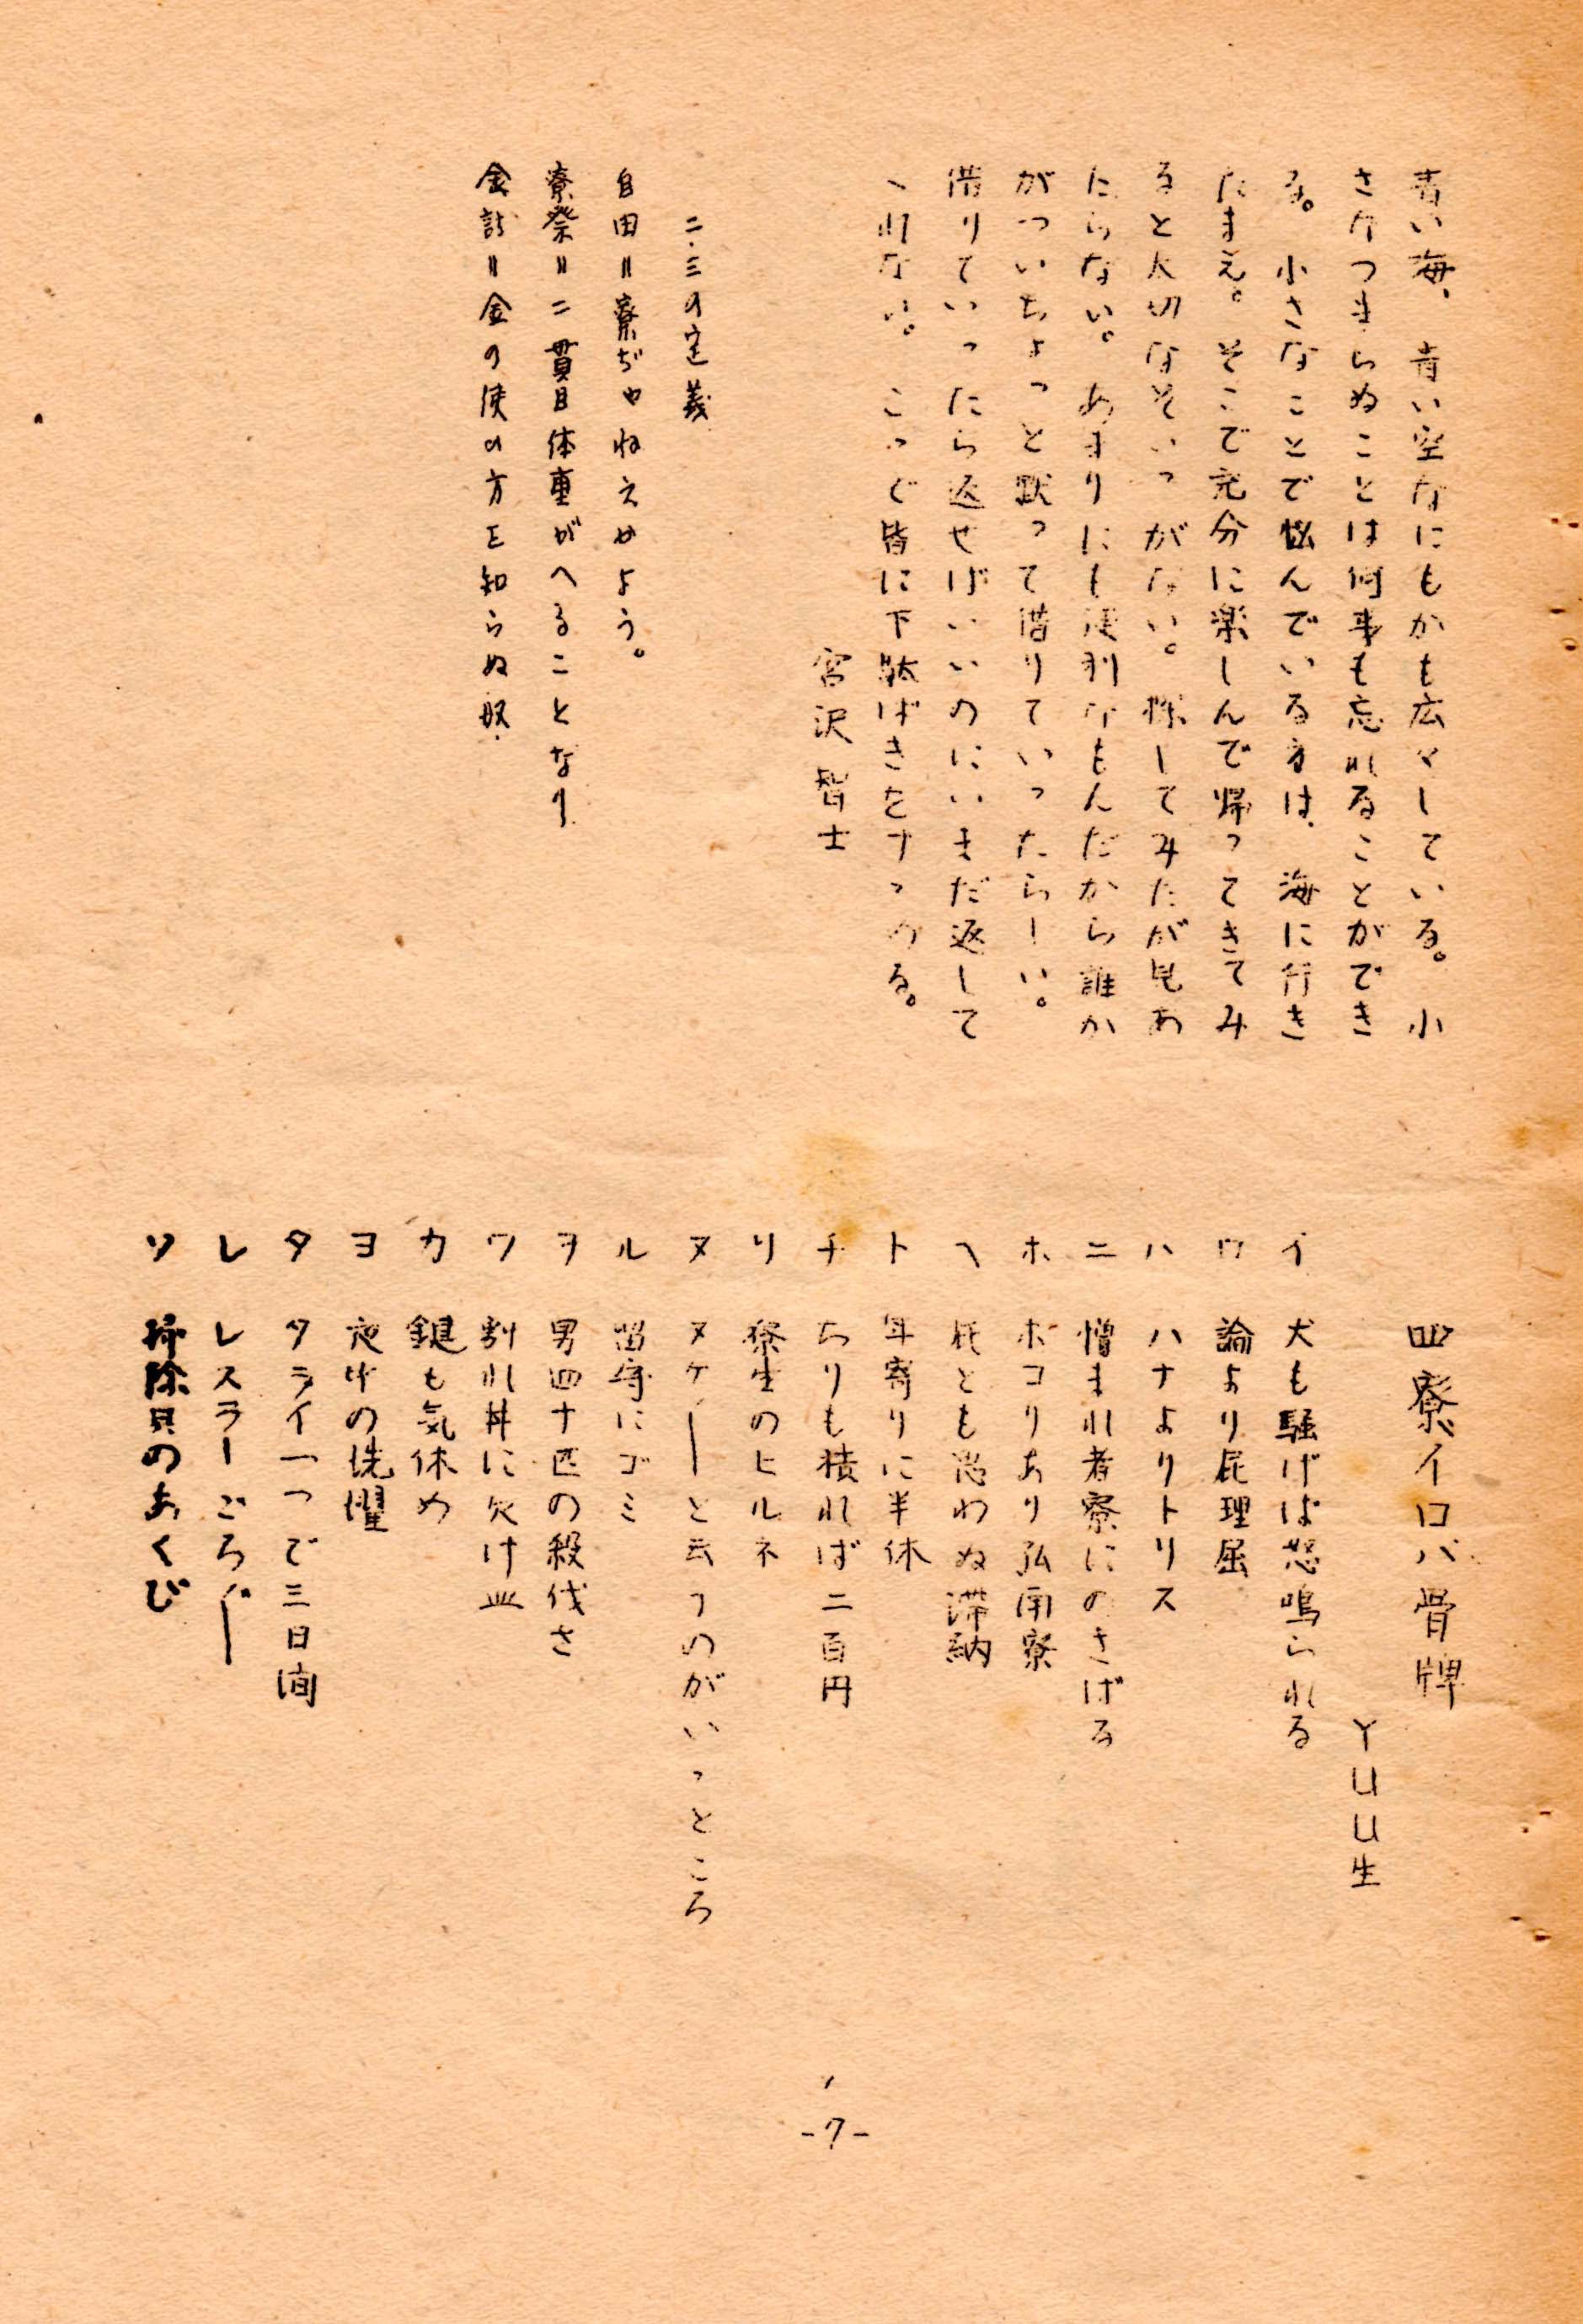 青い海、青い空なにもかも広々している。小
さなつまらぬことは何事も忘れることができ
る。小さなことで悩んでいる方は、海に行き
たまえ。そこで充分に楽しんで帰ってきてみ
ると大切なそいつがない。探してみたが見あ
たらない。あまりにも便利なもんだから誰か
がついちょっと黙って借りていったらしい。
借りていったら返せばいいのにいまだ返して
くれない。こっで皆に下駄ばきをすゝめる。
宮沢智士
二・三の定義
自由＝寮ぢゃねえかよう。
寮祭＝二貫目体重がへることなり
会計＝金の使の方を知らぬ奴.
四寮イロハ骨牌
YUU生
イ 犬も騒げば怒鳴られる
ロ 論より屁理屈
ハ ハナよりトリス
ニ 憎まれ者寮にのさばる
ホ ホコリあり弘南寮
ヘ 屁とも思わぬ滞納
ト 年寄りに半休
チ ちりも積れば二百円
リ 寮生のヒルネ
ヌ ヌケ〳〵と云うのがいっところ
ル 留守にゴミ
ヲ 男四十匹の殺伐さ
ワ 割れ丼に欠け皿
カ 鍵も気休め
ヨ 夜中の洗濯
タ タライ一つで三日間
レ レスラーごろ〴〵
ソ 掃除具のあくび
-7-